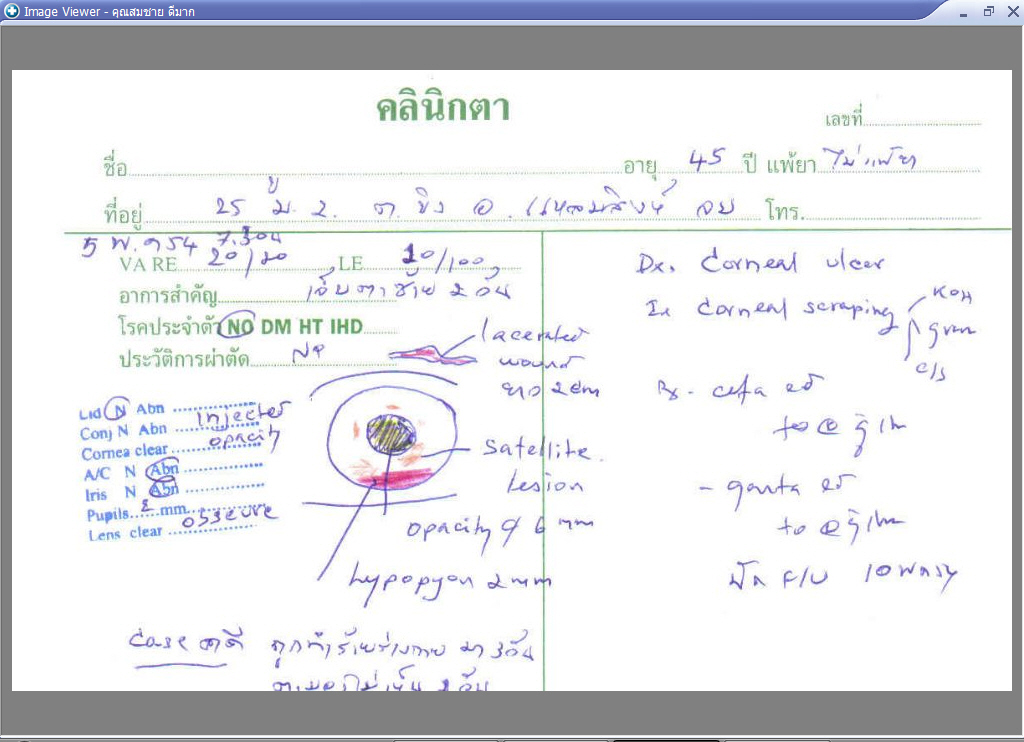 Image Viewer - คุณสมชาย ดีมาก
คลินิกตา
เลขที่
ชื่อ อายุ 45 ปี แพ้ยา ไม่แพ้ยา
ที่อยู่ 25 ม. 2. ต. ขิง อ. แหลมสิงห์ จบ โทร.
5 พ.ค 54 7.30น
VA RE 20/20 , LE 20/100
อาการสำคัญ เจ็บตาซ้าย 2 วัน
โรคประจำตัว NO DM HT IHD
ประวัติการผ่าตัด NO
lacerated
wound
ยาว 2 cm
Lid N Abn
Conj N Abn injected
Cornea clear opacity
A/C N Abn
Iris N Abn
Pupils 2 mm
Lens clear obscure
satellite
lesion
opacity 6 mm
hypopyon 2 mm
case คดี ถูกทำร้ายร่างกาย มา 3 วัน
ตามองไม่เห็น 2 วัน
Dx. Corneal ulcer
Ix Corneal scraping KOH
gram
c/s
Rx - cefa ed
to @ ทุก 1 hr
- genta ed
to @ ทุก 1 hr
นัด F/U 10 พค 54